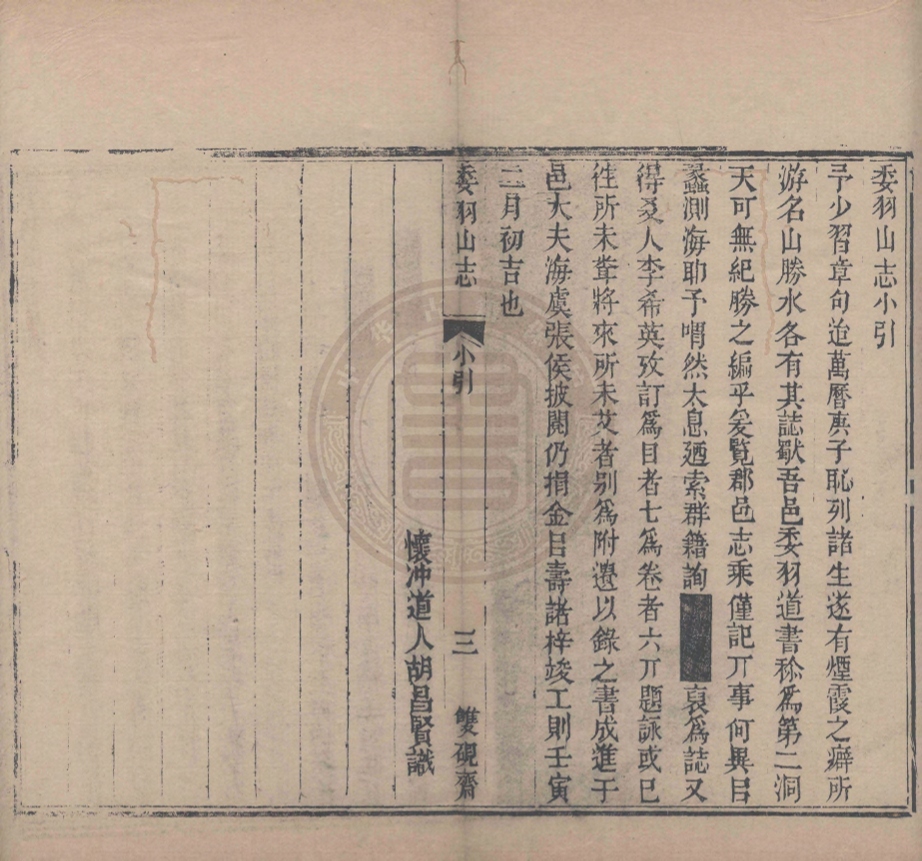 委羽山志小引
予少習章句迨萬曆庚子恥列諸生遂有煙霞之癖所
游名山勝水各有其誌歎吾邑委羽道書稱爲第二洞
天可無紀勝之編乎爰覽郡邑志乘僅記丌事何異目
蠡測海耶予喟然太息廼索群籍詢裒爲誌又
得友人李希英攷訂爲目者七爲卷者六丌題詠或已
徃所未萃將來所未艾者别爲附遺以錄之書成進于
邑大夫海虞張侯披閱仍捐金㠯壽諸梓竣工則壬寅
二月初吉也
懷冲道人胡昌賢識
委羽山志
小引
三
雙硯齋